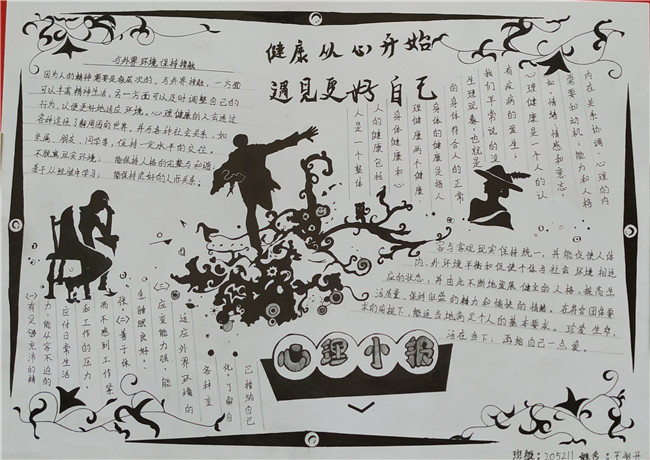 健康从心开始
遇见更好自己
与外界环境保持接触
因为人的精神需要是多层次的，与外界接触，一方面
可以丰富精神生活，另一方面可以及时调整自己的
行为，以便更好地适应环境。心理健康的人会通过
各种途径了解周围的世界，并与各种社会关系，如
亲属、朋友、同学等，保持一定水平的交往。
不脱离现实环境；能保持人格的完整与和谐；
善于从经验中学习；能保持良好的人际关系。
人是一个整体
人的健康包括
身体健康和心
理健康两个健康
身体的健康是指人
的身体符合人的正常
生理现象，也就是
我们平常说的没
有疾病的发生；
心理健康是一个人的认
知、情绪情感和意志、
需要和动机、能力和人格
内在关系协调，心理的内
容与客观现实保持统一，并能促使人体
内、外环境平衡和促使个体与社会环境相适
应的状态，并由此不断地发展健全的人格，提高生
活质量，保持旺盛的精力和愉快的情绪。在符合团体要
求的前提下，能适当地满足个人的基本要求。珍爱生命，
活在当下；再给自己一点爱。
(一)有足够充沛的精
力，能从容不迫的
应付日常生活
和工作的压力，
而不感到工作紧
张。(二)善于休
息睡眠良好。
(三)应变能力强，能
适应外界环境的
各种变
化，了解自
己接纳自己
心理小报
班级：205211 姓名：王